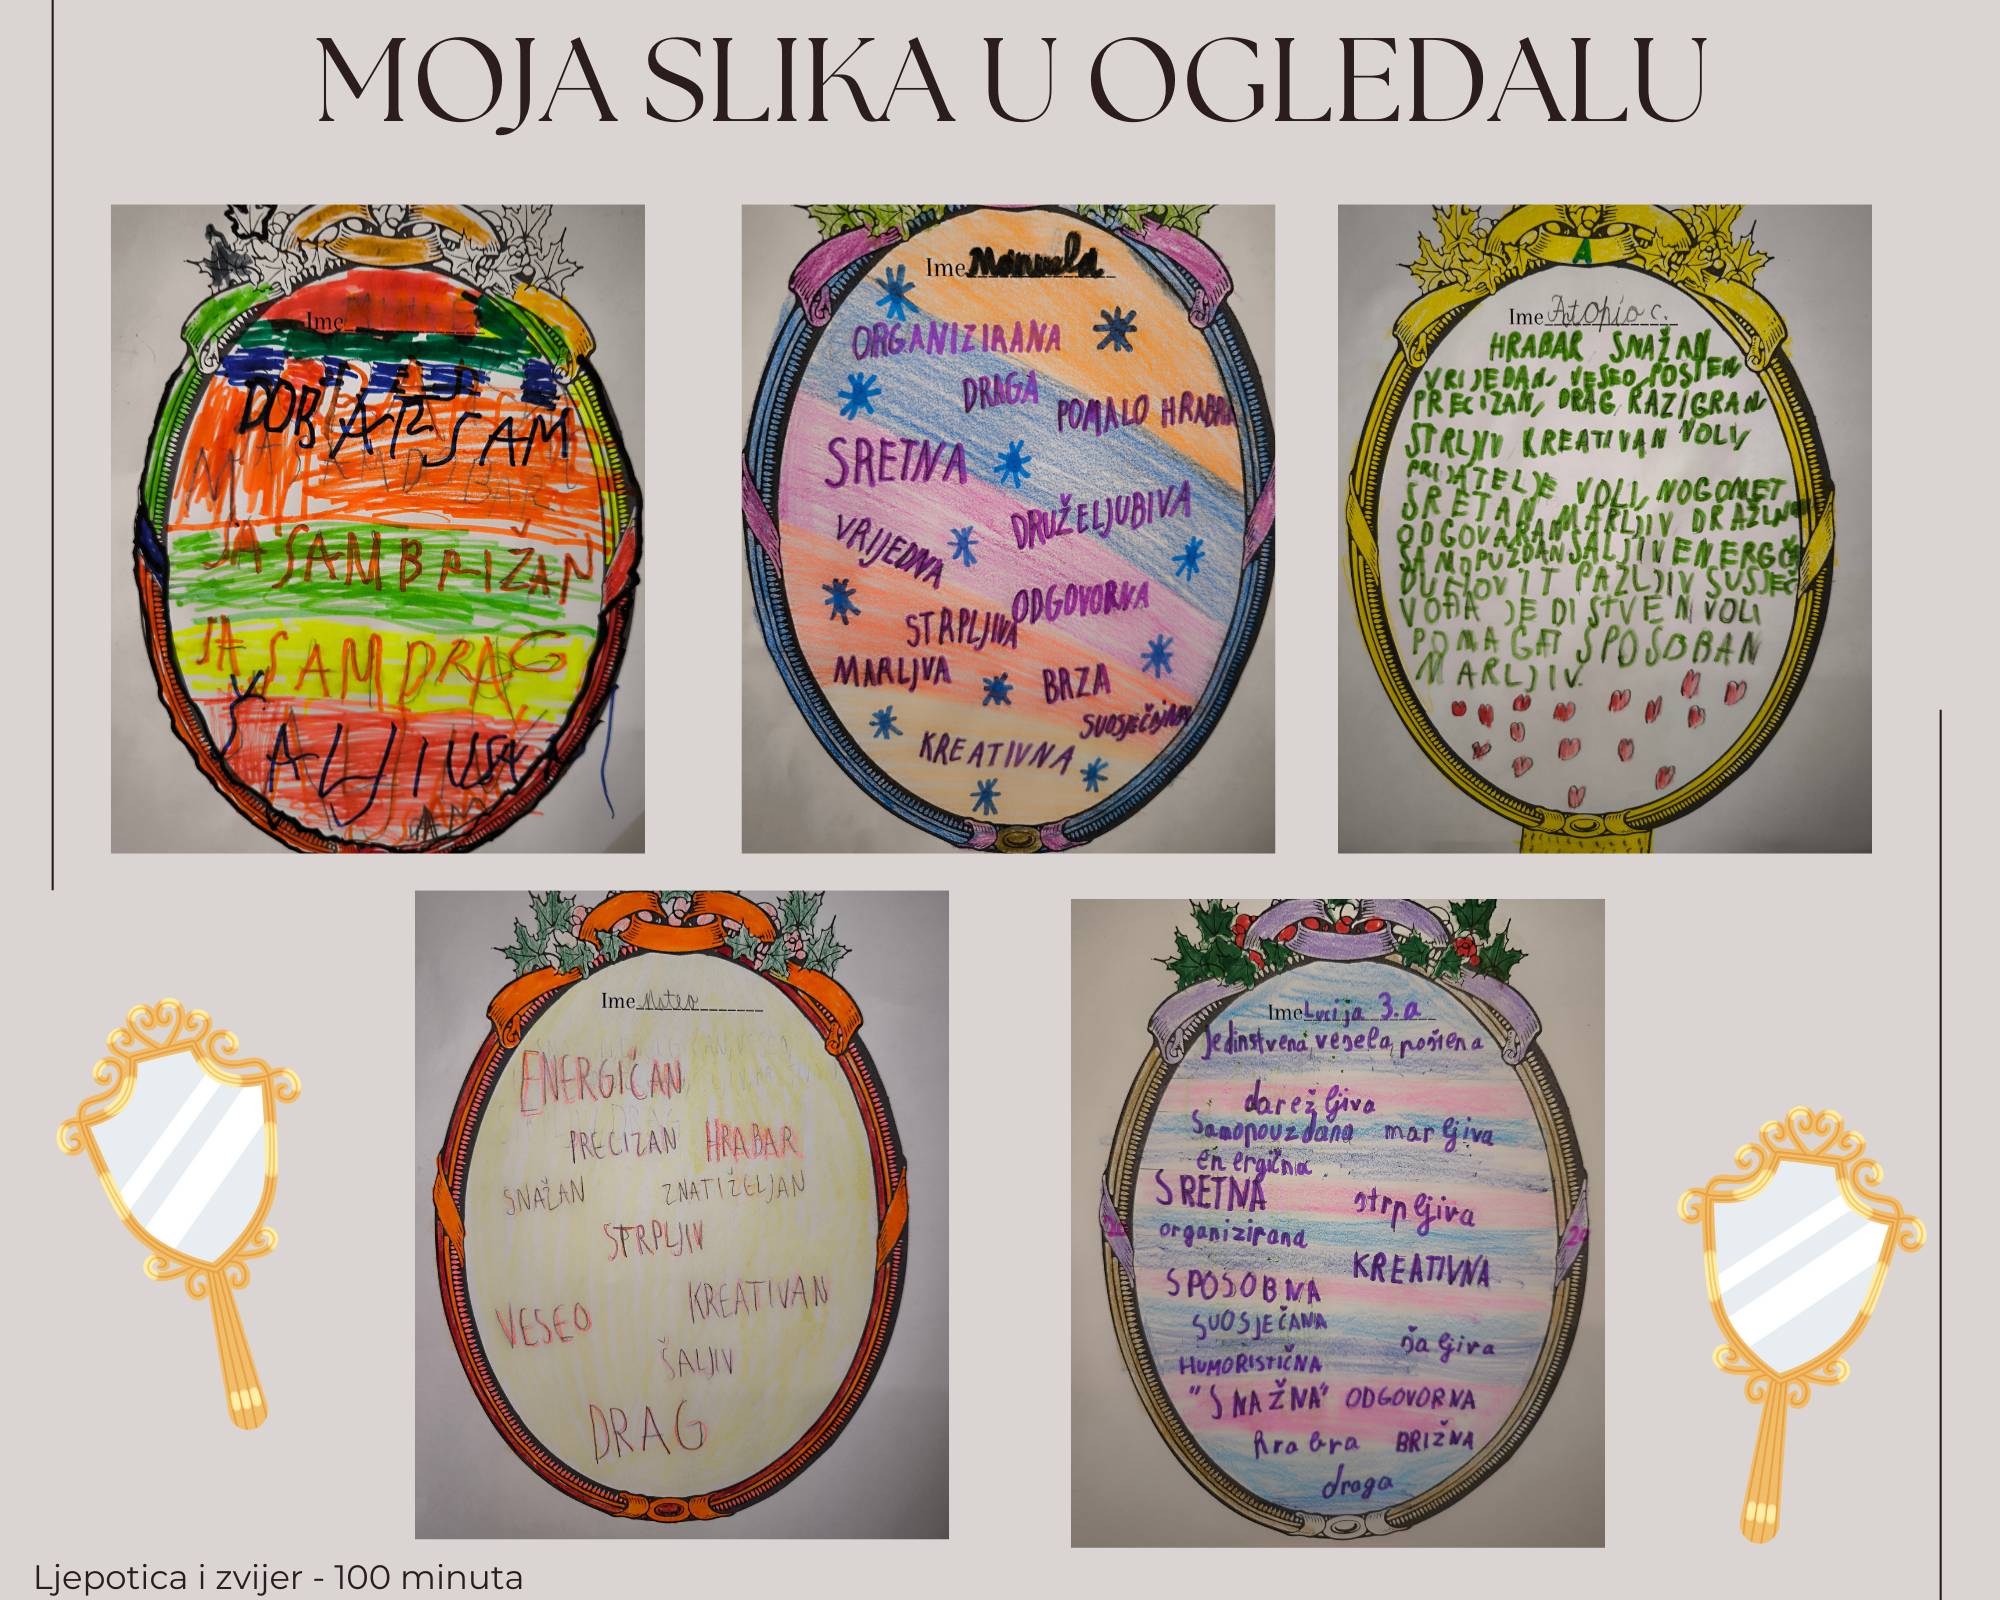 MOJA SLIKA U OGLEDALU
Ime
DOBAR SAM
JA SAM BRIŽAN
JA SAM DRAG
ŠALJIV
Ime Manuela
ORGANIZIRANA
DRAGA
POMALO HRABRA
SRETNA
DRUŽELJUBIVA
VRIJEDNA
ODGOVORNA
STRPLJIVA
MARLJVA
BRZA
KREATIVNA
A
Ime C.
HRABAR SNAŽAN
VRIJEDAN, VESEO, POŠTEN
PRECIZAN, DRAG, RAZIGRAN
STRLJIV KREATIVAN VOLI
PRIJATELJE VOLI, NOGOMET
SRETAN MARLJIV
ODGOVARAN
SAMOPUZDAN ŠALJIV ENERGČ
DUHOVIT PAŽLJIV SUSJEĆ
JEDISTVEN VOLI
POMAGAT SPOSOBAN
MARLJIV.
Ime Mateo
ENERGIČAN
PRECIZAN HRABAR
SNAŽAN ZNATIŽELJAN
STRPLJIV
KREATIVAN
VESEO
ŠALJIV
DRAG
Ime Lucija 3.a
jedinstvena vesela poštena
darežljiva
Samopouzdana marljiva
energična
SRETNA strpljiva
organizirana
KREATIVNA
SPOSOBNA
SUOSJEČANA
šaljiva
HUMORISTIČNA
"SNAŽNA" ODGOVORNA
hrabra BRIŽNA
draga
Ljepotica i zvijer - 100 minuta